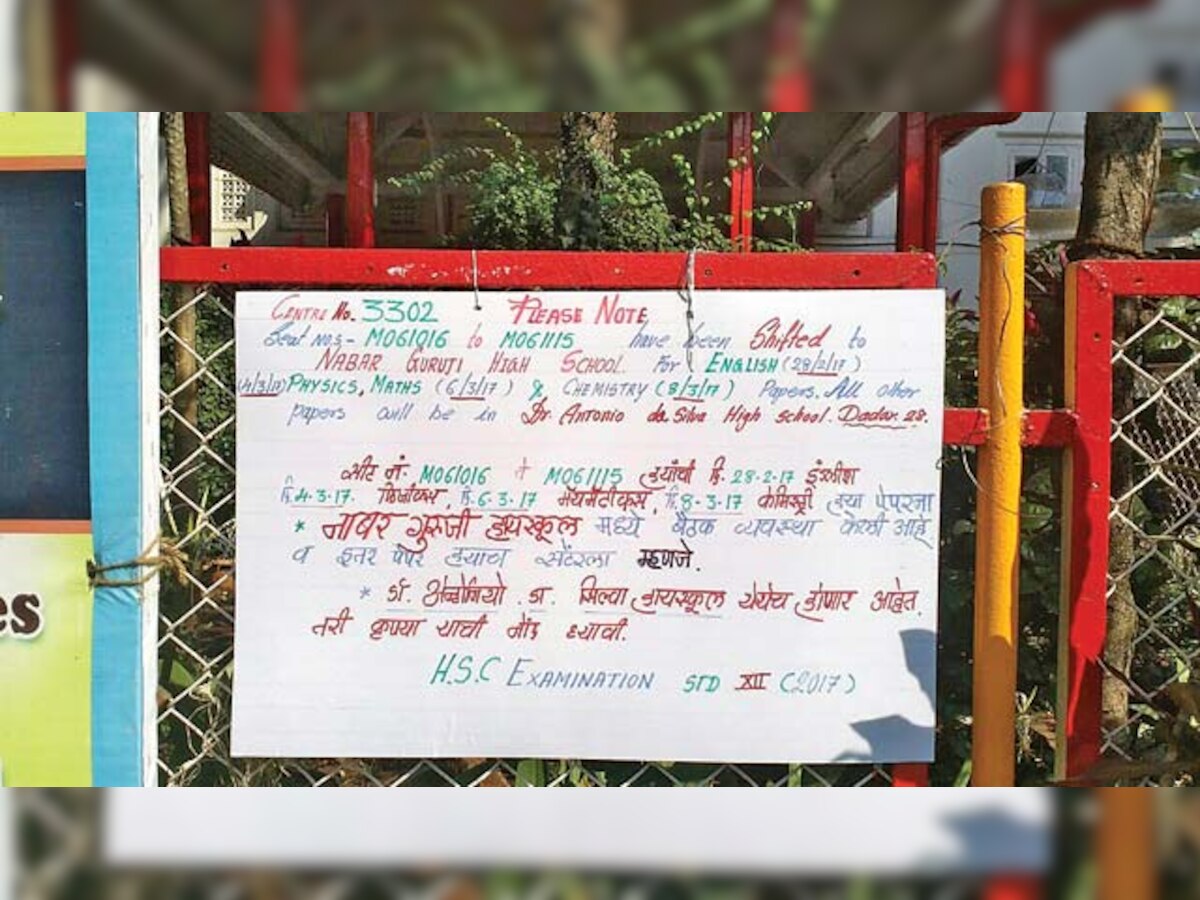 CENTRE No. 3302 PLEASE NOTE
Seat No.s- M061016 to M061115 have been Shifted to
NABAR GURUJI HIGH SCHOOL. For ENGLISH (28/2/17)
(4/3/17) PHYSICS, MATHS (6/3/17) & CHEMISTRY (8/3/17) Papers. All other
papers will be in Dr. Antonio da Silva High school. Dadar 28.
सीट नं. M061016 ते M061115 ह्यांची दि. 28-2-17 इंग्लीश
दि. 4-3-17. फिजीक्स, दि. 6-3-17 मॅथमॅटीक्स, दि. 8-3-17 केमिस्ट्री ह्या पेपरना
* नाबर गुरुजी हायस्कूल मध्ये बैठक व्यवस्था केली आहे
व इतर पेपर ह्याच सेंटरला म्हणजे.
* डॉ. अन्टोनियो डा. सिल्वा हायस्कूल येथेच होणार आहेत.
तरी कृपया याची नोंद घ्यावी.
H.S.C EXAMINATION STD XII (2017)
es